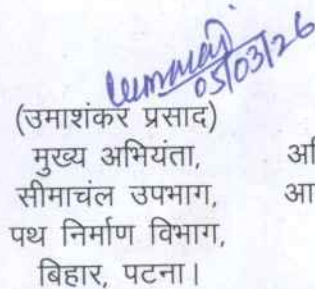 05/03/26
(उमाशंकर प्रसाद)
मुख्य अभियंता,
सीमाचंल उपभाग,
पथ निर्माण विभाग,
बिहार, पटना।